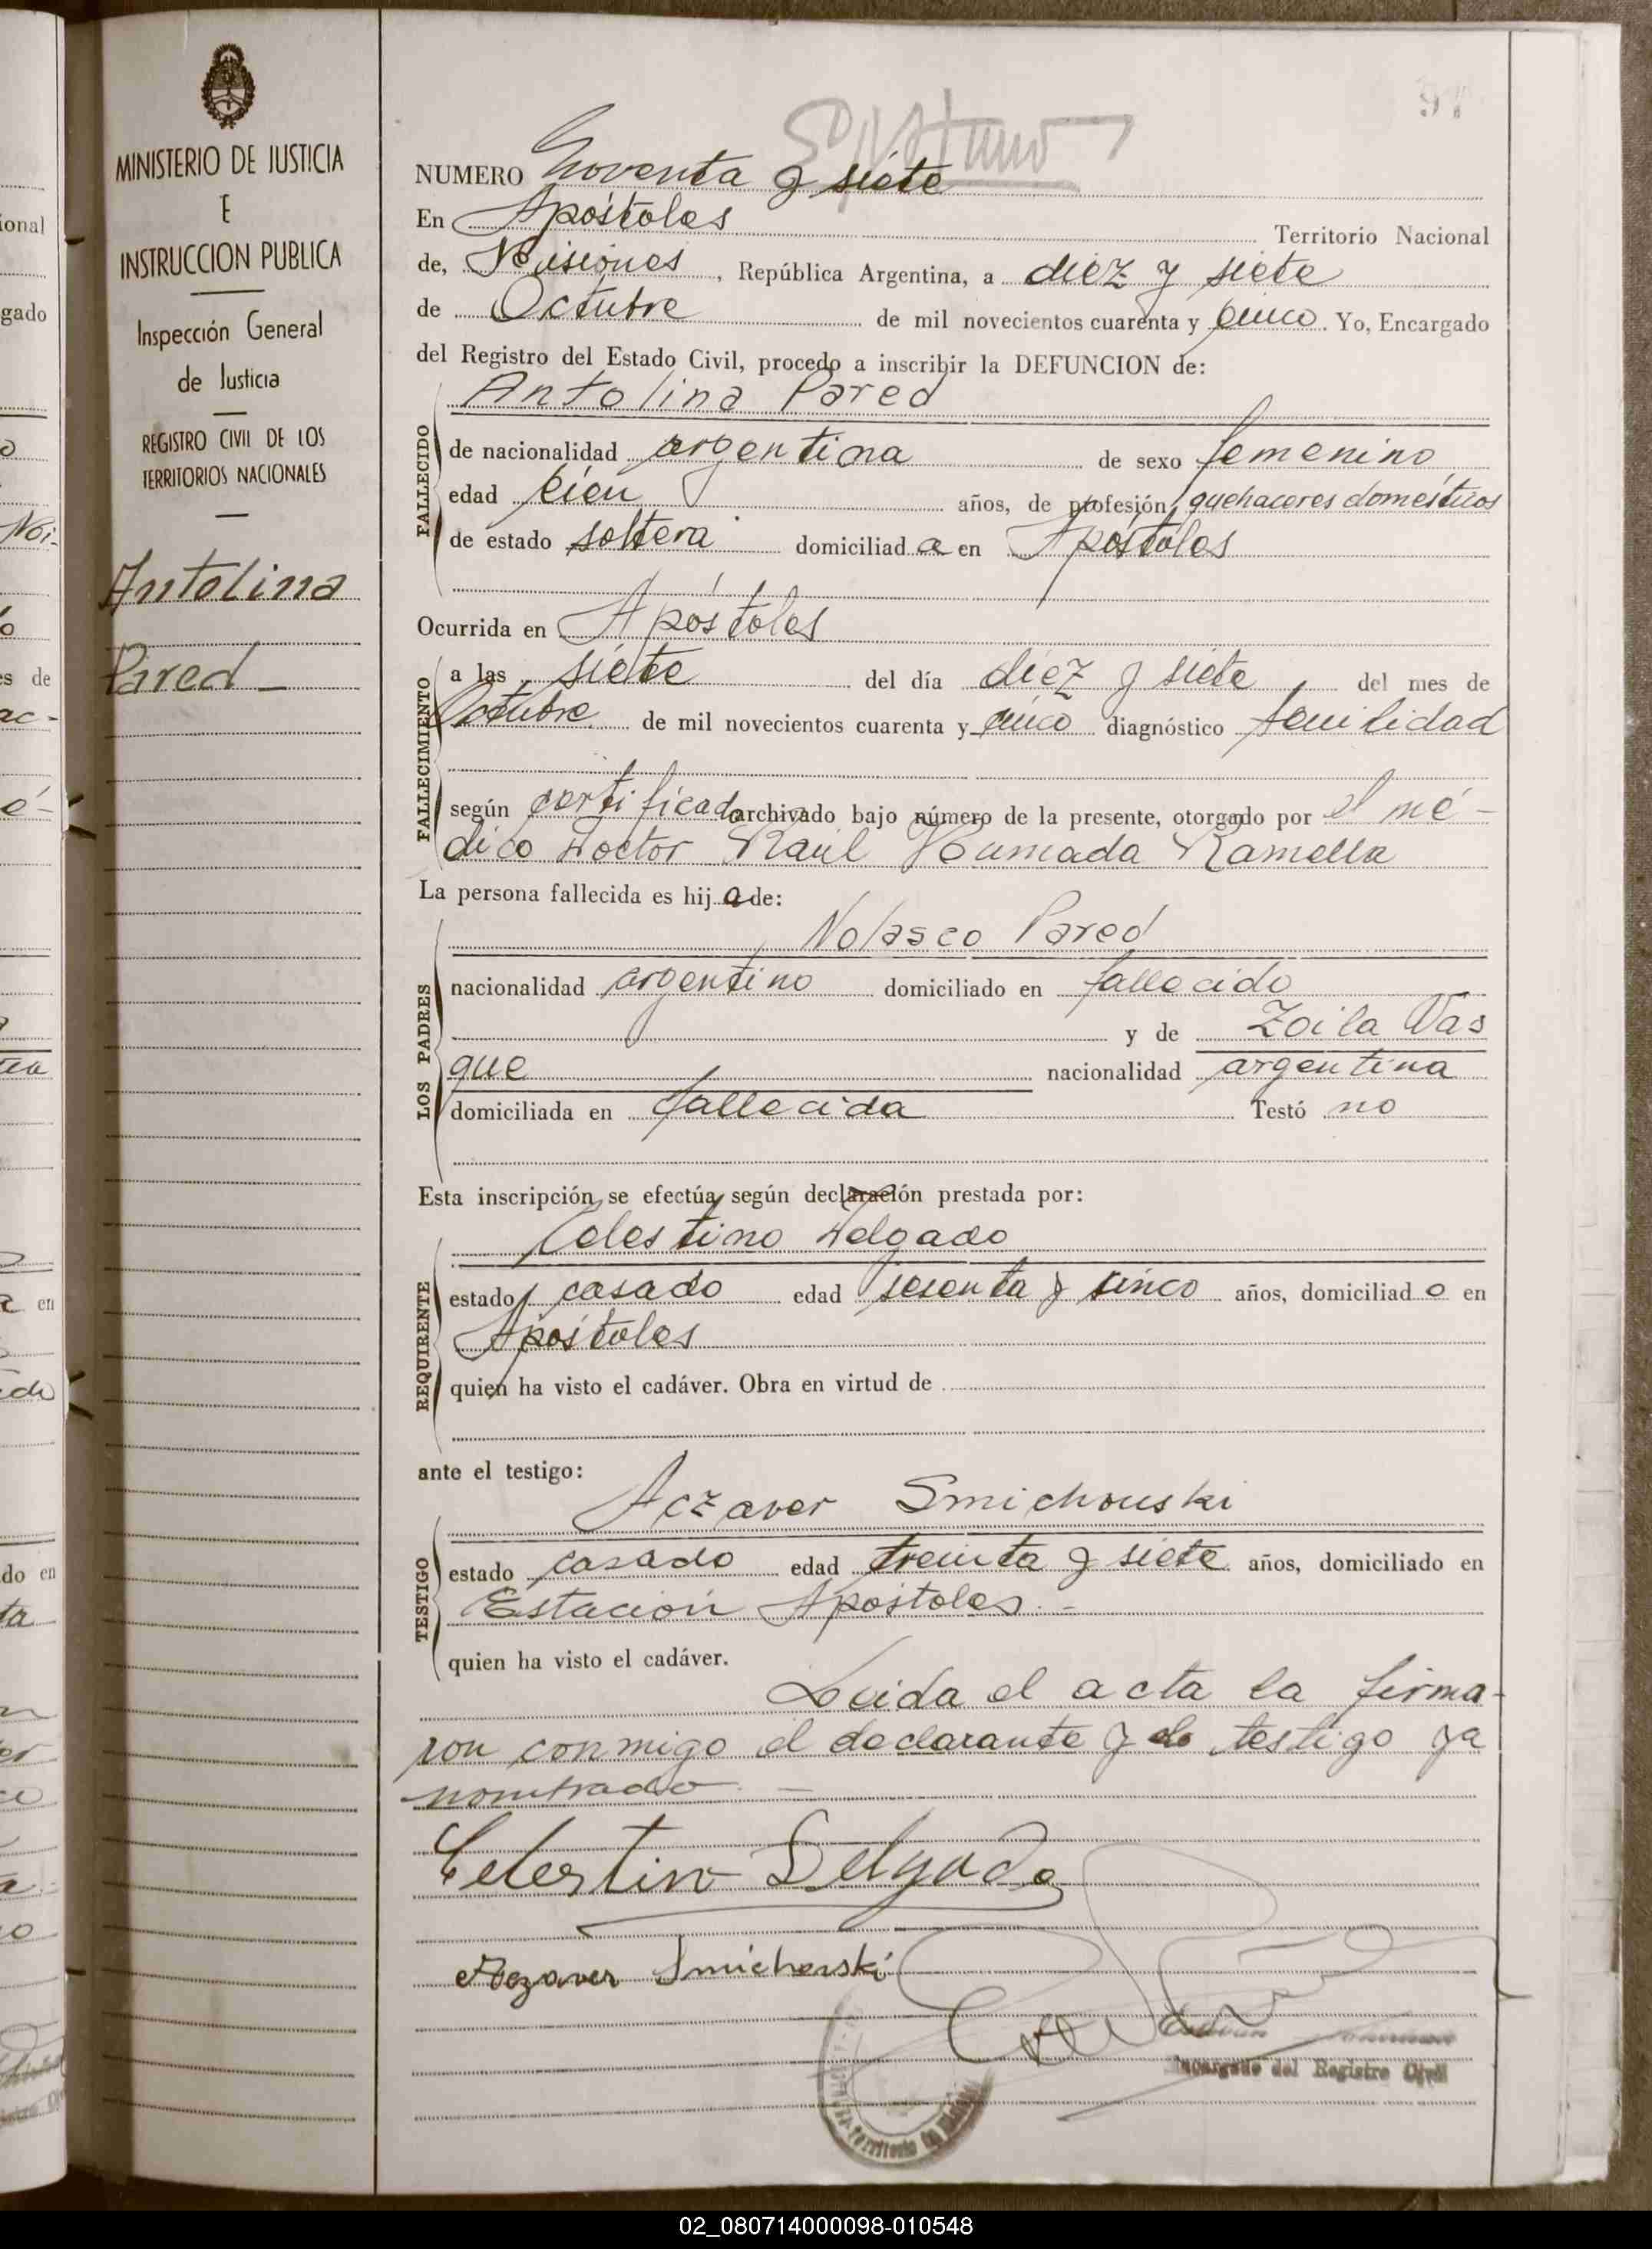 MINISTERIO DE JUSTICIA
E
INSTRUCCION PUBLICA
Inspección General
de Justicia
REGISTRO CIVIL DE LOS
TERRITORIOS NACIONALES
Antolina
Pared
97
NUMERO Noventa y siete
En Apóstoles Territorio Nacional
de, Misiones, República Argentina, a diez y siete
de Octubre de mil novecientos cuarenta y cinco. Yo, Encargado
del Registro del Estado Civil, procedo a inscribir la DEFUNCION de:
Antolina Pared
FALLECIDO
de nacionalidad argentina de sexo femenino
edad cien años, de profesión quehaceres domésticos
de estado soltera domiciliada en Apóstoles
Ocurrida en Apóstoles
FALLECIMIENTO
a las siete del día diez y siete del mes de
Octubre de mil novecientos cuarenta y cinco diagnóstico senilidad
según certificado archivado bajo número de la presente, otorgado por el mé-
dico Doctor Raúl Humada Ramella
La persona fallecida es hija de:
LOS PADRES
Nolasco Pared
nacionalidad argentino domiciliado en fallecido
y de Zoila Vas
que nacionalidad argentina
domiciliada en fallecida Testó no
Esta inscripción se efectúa según declaración prestada por:
REQUIRENTE
Celestino Delgado
estado casado edad sesenta y cinco años, domiciliado en
Apóstoles
quien ha visto el cadáver. Obra en virtud de
ante el testigo:
TESTIGO
Aczaver Smichouski
estado casado edad treinta y siete años, domiciliado en
Estación Apóstoles.-
quien ha visto el cadáver.
Leida el acta la firma-
ron conmigo el declarante y el testigo ya
nombrado. -
Celestino Delgado
Aczaver Smichoski
Encargado del Registro Civil
Territorio de Misiones
02_080714000098-010548